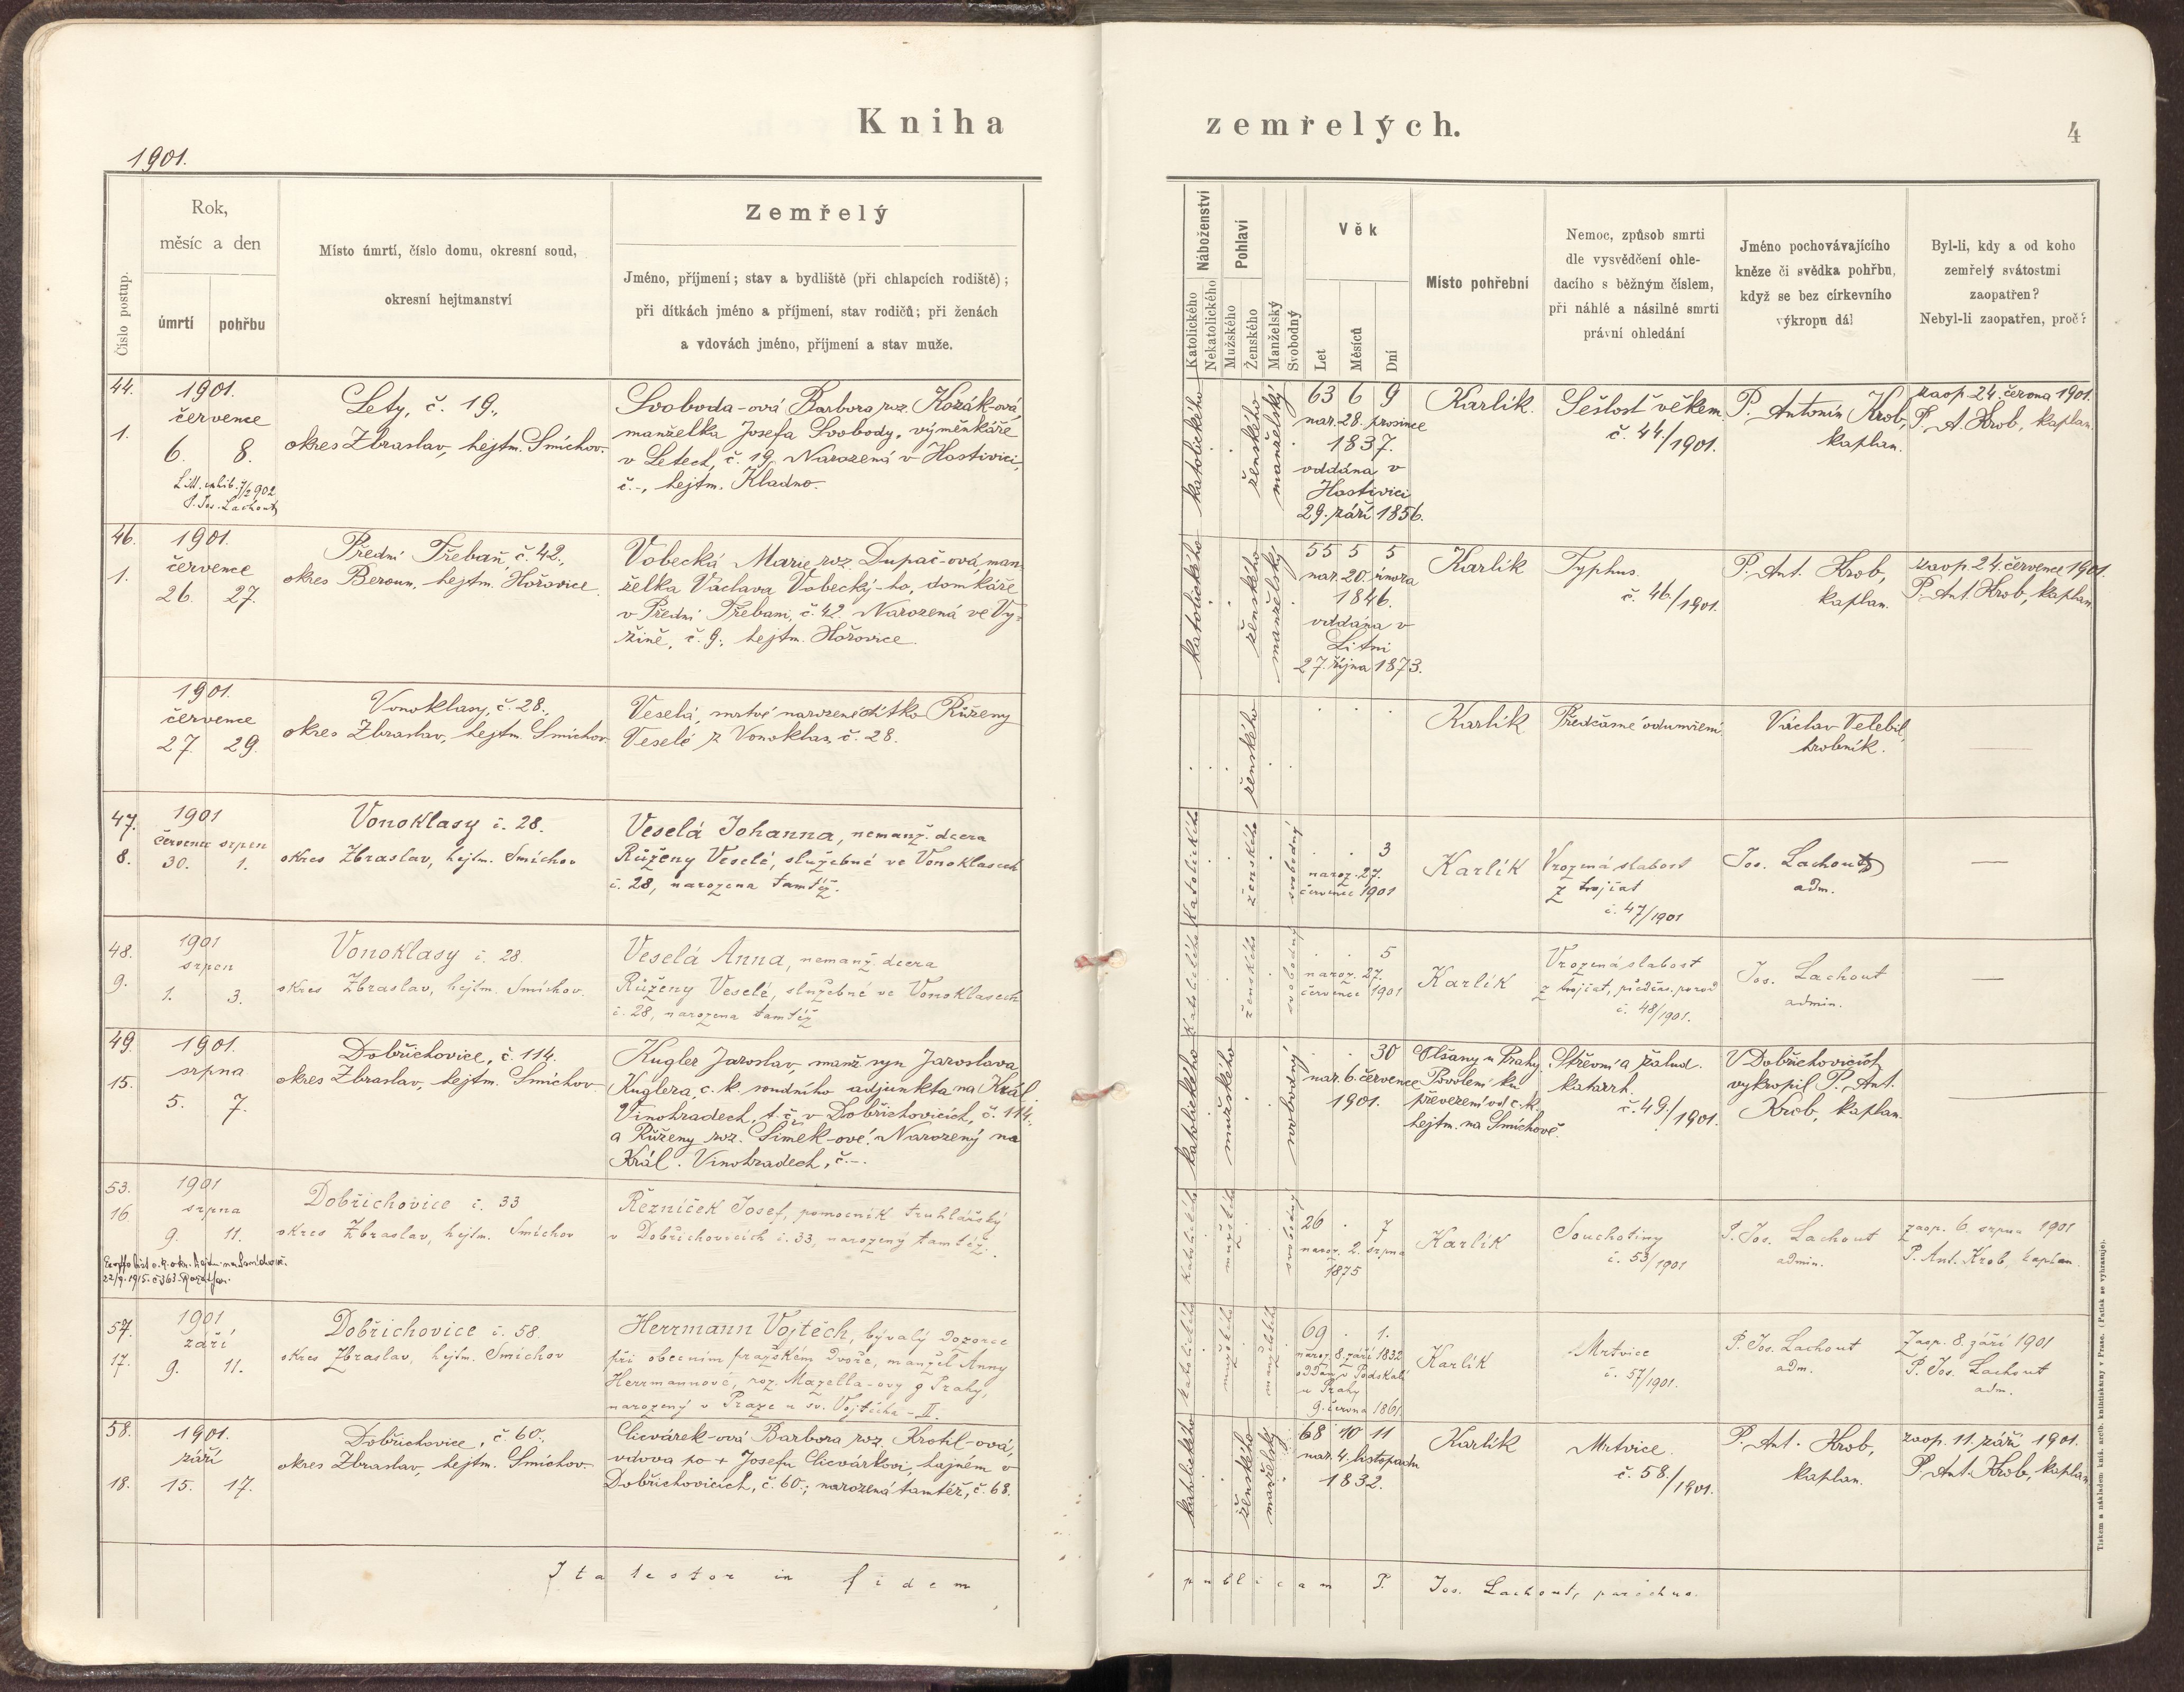 Kniha
zemřelých.
4
1901.
Číslo postup.
Rok,
měsíc a den
úmrtí
pohřbu
Místo úmrtí, číslo domu, okresní soud,
okresní hejtmanství
Zemřelý
Jméno, příjmení; stav a bydliště (při chlapcích rodiště);
při dítkách jméno a příjmení, stav rodičů; při ženách
a vdovách jméno, příjmení a stav muže.
Náboženství
Katolického
Nekatolického
Pohlaví
Mužského
Ženského
Manželský
Svobodný
Věk
Let
Měsíců
Dní
Místo pohřební
Nemoc, způsob smrti
dle vysvědčení ohle-
dacího s běžným číslem,
při náhlé a násilné smrti
právní ohledání
Jméno pochovávajícího
kněze či svědka pohřbu,
když se bez církevního
výkropu dál
Byl-li, kdy a od koho
zemřelý svátostmi
zaopatřen?
Nebyl-li zaopatřen, proč?
44.
1.
1901.
července
6. 8.
Litt. exhib. 7/2 902
P. Jos. Lachout
Lety, č. 19.,
okres Zbraslav, hejtm. Smíchov.
Svoboda-ová Barbora roz. Kozák-ová,
manželka Josefa Svobody, výměnkáře
v Letech, č. 19. Narozená v Hostivici,
č.-, hejtm. Kladno.
katolického
ženského
manželský
63 6 9
nar. 28. prosince
1837.
oddána v
Hostivici
29. září 1856.
Karlík.
Sešlosť věkem.
č. 44./1901.
P. Antonín Krob,
kaplan.
zaop. 24. června 1901.
P. A. Krob, kaplan.
46.
1.
1901.
července
26. 27.
Přední Třebaň, č. 42.,
okres Beroun, hejtm. Hořovice.
Vobecká Marie, roz. Dupač-ová, man-
želka Václava Vobecký-ho, domkáře
v Přední Třebani, č. 42. Narozená ve Vy-
žině, č. 9., hejtm. Hořovice.
katolického
ženského
manželský
55 5 5
nar. 20. února
1846.
oddána v
Litni
27. října 1873.
Karlík
Typhus.
č. 46./1901.
P. Ant. Krob,
kaplan.
zaop. 24. července 1901.
P. Ant. Krob, kaplan
1901.
července
27 29.
Vonoklasy, č. 28.,
okres Zbraslav, hejtm. Smíchov.
Veselá, mrtvě narozené dítko Růženy
Veselé z Vonoklas, č. 28.
ženského
Karlík
Předčasné odumření.
Václav Velebil,
hrobník.
47.
8.
1901
červenec srpen
30. 1.
Vonoklasy č. 28.
okres Zbraslav, hejtm. Smíchov
Veselá Johanna, nemanž. dcera
Růženy Veselé, služebné ve Vonoklasech
č. 28, narozena tamtéž.
Katolického
ženského
svobodný
3
naroz. 27.
července 1901
Karlík
Vrozená slabost
z trojčat
č. 47/1901
Jos. Lachout
adm.
—
48.
9.
1901
srpen
1. 3.
Vonoklasy č. 28.
okres Zbraslav, hejtm. Smíchov.
Veselá Anna, nemanž. dcera
Růženy Veselé, služebné ve Vonoklasech
č. 28, narozena tamtéž
Katolického
ženského
svobodný
5
naroz. 27.
července 1901
Karlík
Vrozená slabost
z trojčat, předčas. porod
č. 48/1901.
Jos. Lachout
admin.
—
49.
15.
1901.
srpna
5. 7.
Dobřichovice, č. 114.
okres Zbraslav, hejtm. Smíchov.
Kugler Jaroslav, manž. syn Jaroslava
Kuglera, c. k. soudního adjunkta na Král.
Vinohradech, t. č. v Dobřichovicích, č. 114.,
a Růženy roz. Šimek-ové. Narozený na
Král. Vinohradech, č.-.
katolického
mužského
svobodný
30
nar. 6. července
1901.
Olšany u Prahy.
Povolení ku
převezení od c. k.
hejtm. na Smíchově.
Střevní a žalud.
katarrh.
č. 49./1901.
V Dobřichovicích
vykropil P. Ant.
Krob, kaplan.
53.
16
1901
srpna
9. 11.
22/9. 1915.
Dobřichovice č. 33
okres Zbraslav, hejtm. Smíchov
Řezníček Josef, pomocník truhlářský
v Dobřichovicích č. 33, narozený tamtéž.
Katolického
mužského
svobodný
26 . 7
naroz. 2. srpna
1875
Karlík
Souchotiny
č. 53/1901
P. Jos. Lachout
admin.
zaop. 6. srpna 1901
P. Ant. Krob, kaplan.
57.
17.
1901
září
9. 11.
Dobřichovice č. 58.
okres Zbraslav, hejtm. Smíchov
Herrmann Vojtěch, bývalý dozorce
při obecním pražském dvoře, manžel Anny
Herrmannové, roz. Mazella-ovy z Prahy,
narozený v Praze u sv. Vojtěcha - II.
katolického
mužského
manželského
69 . 1.
naroz. 8. září 1832
oddán v Podskalí
u Prahy
9. června 1861
Karlík
Mrtvice
č. 57/1901.
P. Jos. Lachout
adm.
Zaop. 8. září 1901
P. Jos. Lachout
adm.
58.
18.
1901.
září
15. 17.
Dobřichovice, č. 60.
okres Zbraslav, hejtm. Smíchov.
Clivárek-ová Barbora roz. Krotil-ová,
vdova po + Josefu Clivárkovi, hajném v
Dobřichovicích, č. 60., narozená tamtéž, č. 68.
katolického
ženského
manželský
68 10 11
nar. 4. listopadu
1832.
Karlík
Mrtvice.
č. 58./1901.
P. Ant. Krob,
kaplan.
zaop. 11. září 1901.
P. Ant. Krob, kaplan
Ita testor in fidem
publicam P. Jos. Lachout, parochus.
Tiskem a nákladem knih. arcib. knihtiskárny v Praze. (Patisk se vyhrazuje).